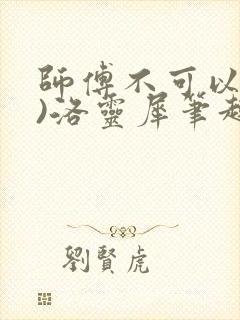 師傅不可以
)洛靈犀筆趣
劉賢虎